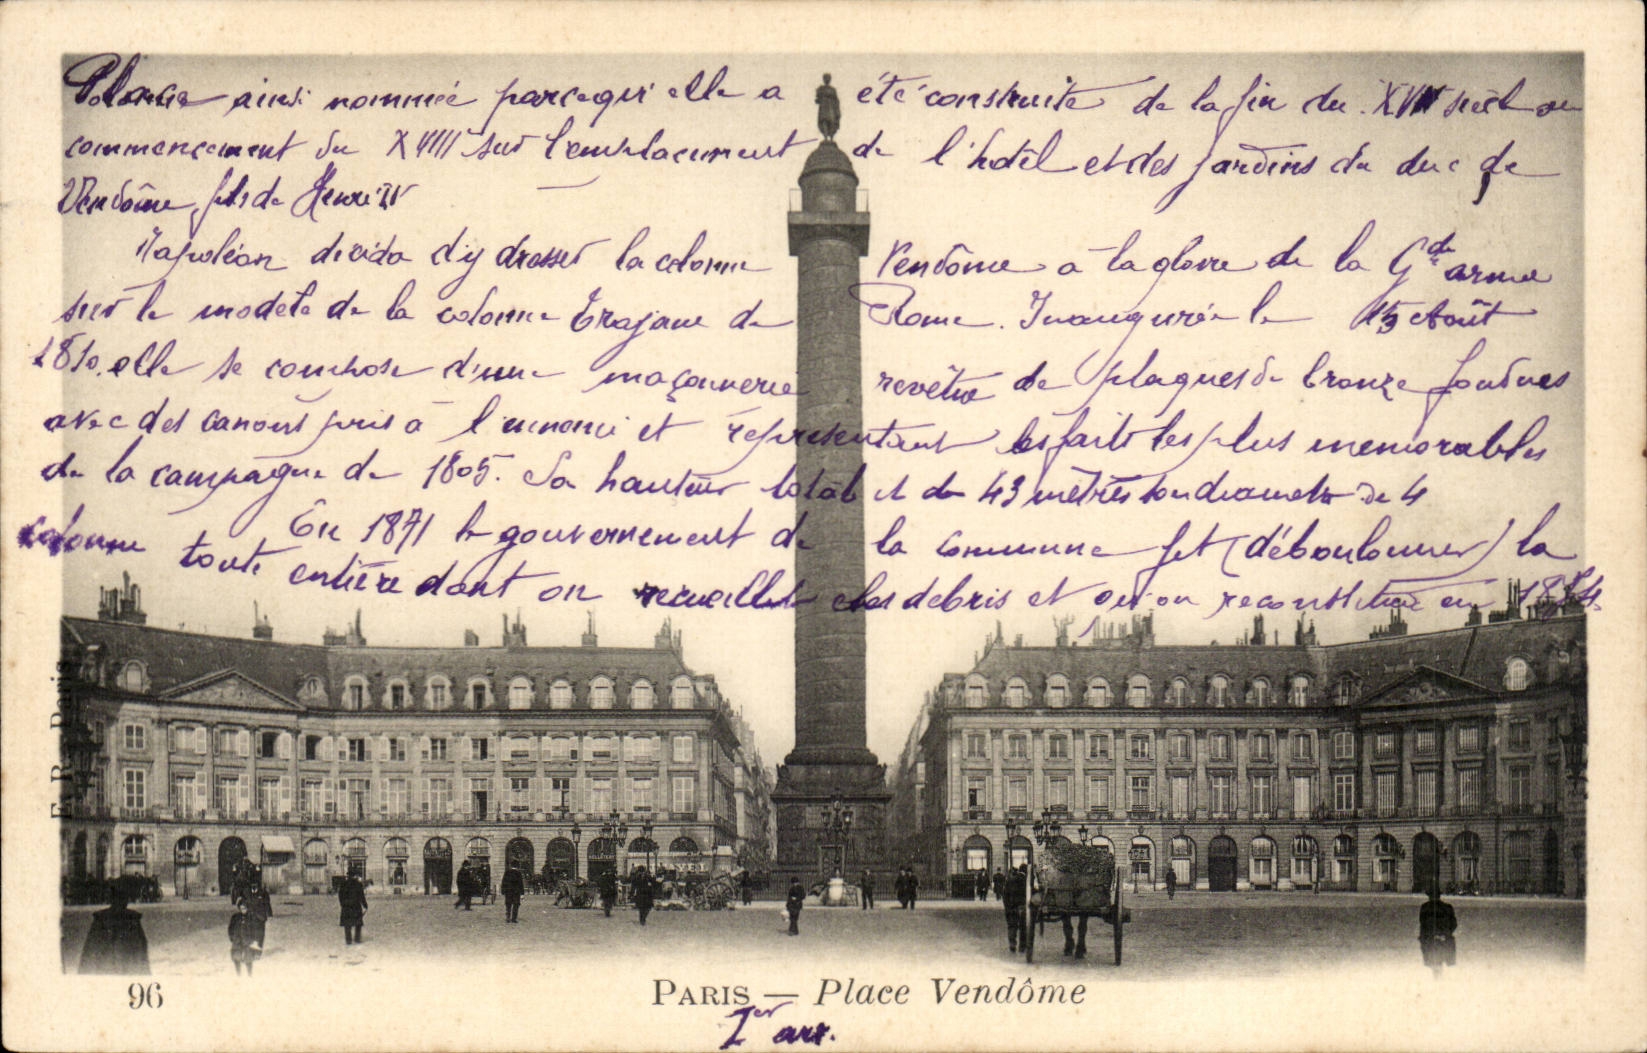 Place ainsi nommée parcequ'elle a été construite de la fin du XVII siècle au
commencement du XVIII sur l'emplacement de l'hôtel et des jardins du duc de
Vendôme, fils de Henri IV
Napoléon décida d'y dresser la colonne Vendôme à la gloire de la Gde armée
sur le modèle de la colonne Trajane de Rome. Inaugurée le 15 Août
1810, elle se compose d'une maçonnerie revêtue de plaques de bronze fondues
avec des canons pris à l'ennemi et représentant les faits les plus mémorables
de la campagne de 1805. Sa hauteur totale est de 43 mètres son diamètre de 4
En 1871 le gouvernement de la commune fit (déboulonner) la
colonne toute entière dont on recueillit les débris et qu'on reconstitua en
E. R. Paris
96
PARIS — Place Vendôme
Ier arr.